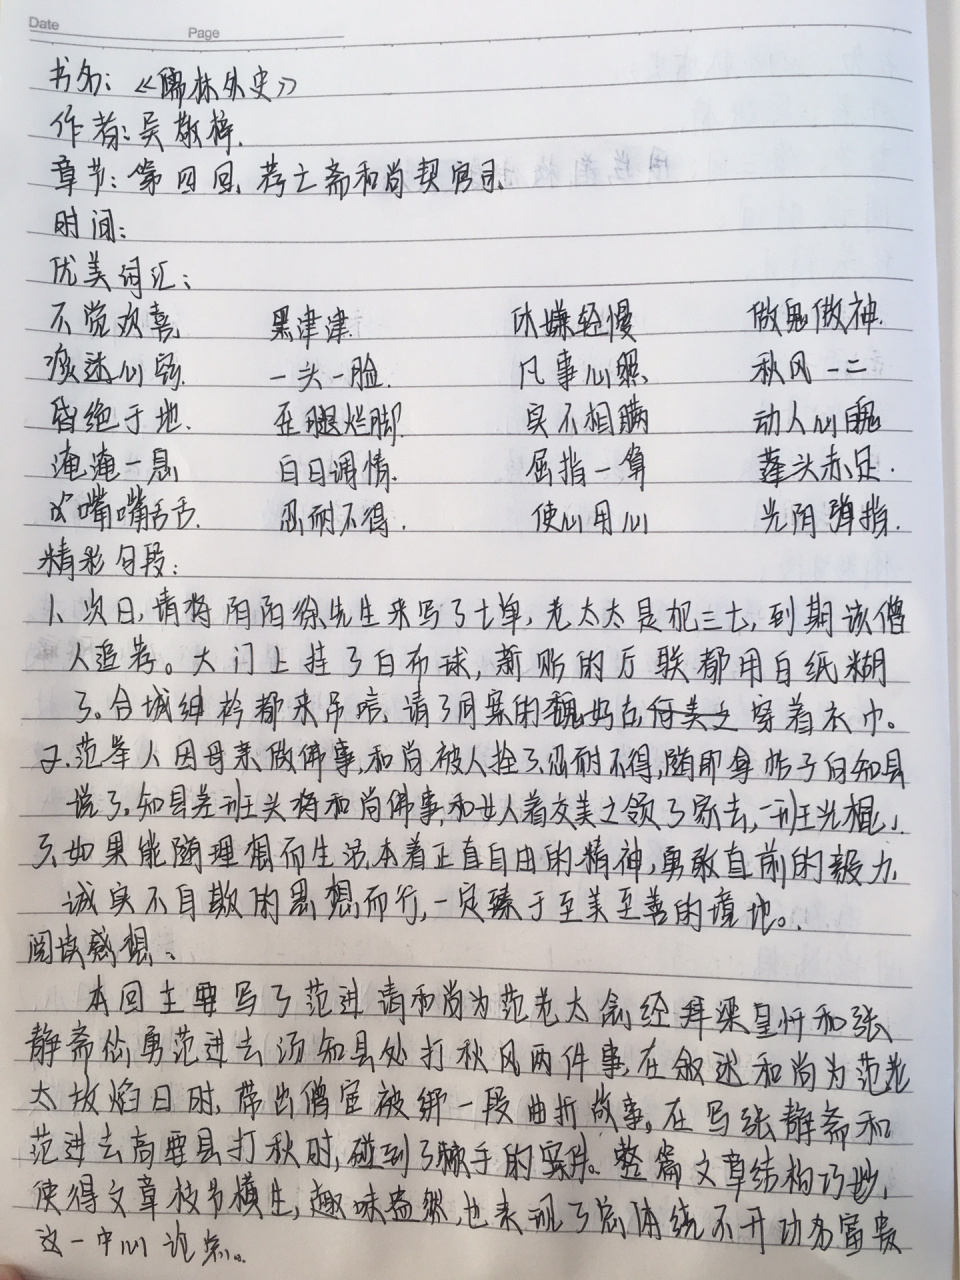 Date
Page
书名：《儒林外史》
作者：吴敬梓.
章节：第四回、荐亡斋和尚契官司
时间：
优美词汇：
不觉欢喜 黑津津 休嫌轻慢 做鬼做神.
痰迷心窍. 一头一脸. 凡事心照 秋风一二
昏绝于地. 歪腿烂脚 实不相瞒 动人心魄
淹淹一息 白日调情. 屈指一算 蓬头赤足.
咬嘴嚼舌. 忍耐不得. 使心用心 光阴弹指.
精彩句段：
1、次日,请将阴阳徐先生来写了七单,老太太是犯三七,到期该僧
人追荐。大门上挂了白布球,新贴的厅联都用白纸糊
了。合城绅衿都来吊唁,请了同案的魏好古穿着衣巾。
2.范举人因母亲做佛事,和尚被人拴了忍耐不得,随即拿帖子向知县
说了。知县差班头将和尚佛事,和女人着交美之领了家去,一班光棍」
3.如果能随理想而生活,本着正直自由的精神,勇敢直前的毅力,
诚实不自欺的思想而行,一定臻于至美至善的境地。.
阅读感想、
本回主要写了范进请和尚为范老太念经拜梁皇忏和张
静斋怂勇范进去汤知县处打秋风两件事,在叙述和尚为范老
太放焰日时,带出僧官被绑一段曲折故事。在写张静斋和
范进去高要县打秋时,碰到了棘手的实际。整篇文章结构巧妙,
使得文章枝节横生,趣味盎然,也表现了总体绕不开功名富贵
这一中心论点。